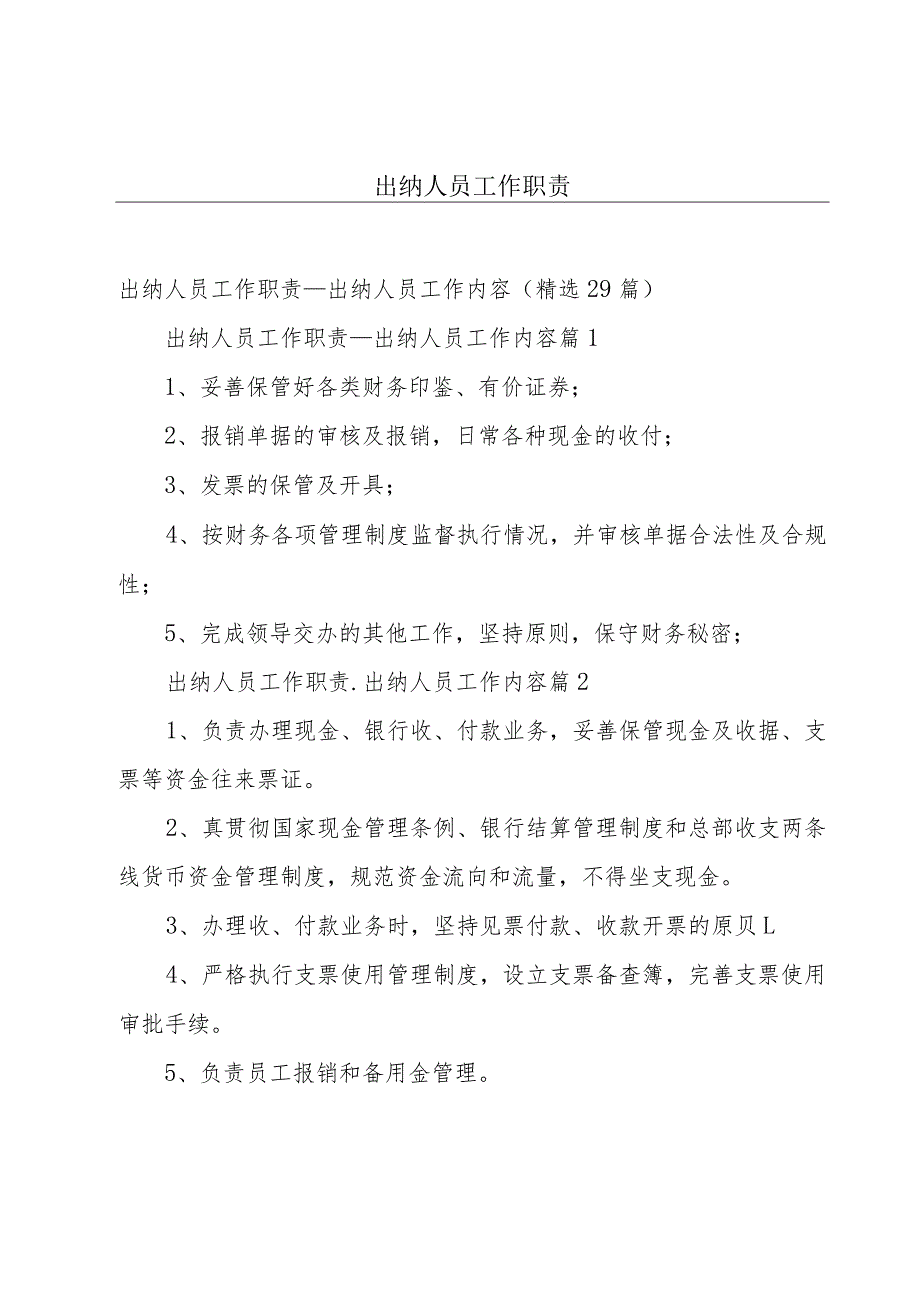 出纳人员工作职责
出纳人员工作职责—出纳人员工作内容（精选29篇）
出纳人员工作职责—出纳人员工作内容篇1
1、妥善保管好各类财务印鉴、有价证券；
2、报销单据的审核及报销，日常各种现金的收付；
3、发票的保管及开具；
4、按财务各项管理制度监督执行情况，并审核单据合法性及合规
性；
5、完成领导交办的其他工作，坚持原则，保守财务秘密；
出纳人员工作职责.出纳人员工作内容篇2
1、负责办理现金、银行收、付款业务，妥善保管现金及收据、支
票等资金往来票证。
2、真贯彻国家现金管理条例、银行结算管理制度和总部收支两条
线货币资金管理制度，规范资金流向和流量，不得坐支现金。
3、办理收、付款业务时，坚持见票付款、收款开票的原贝L
4、严格执行支票使用管理制度，设立支票备查簿，完善支票使用
审批手续。
5、负责员工报销和备用金管理。